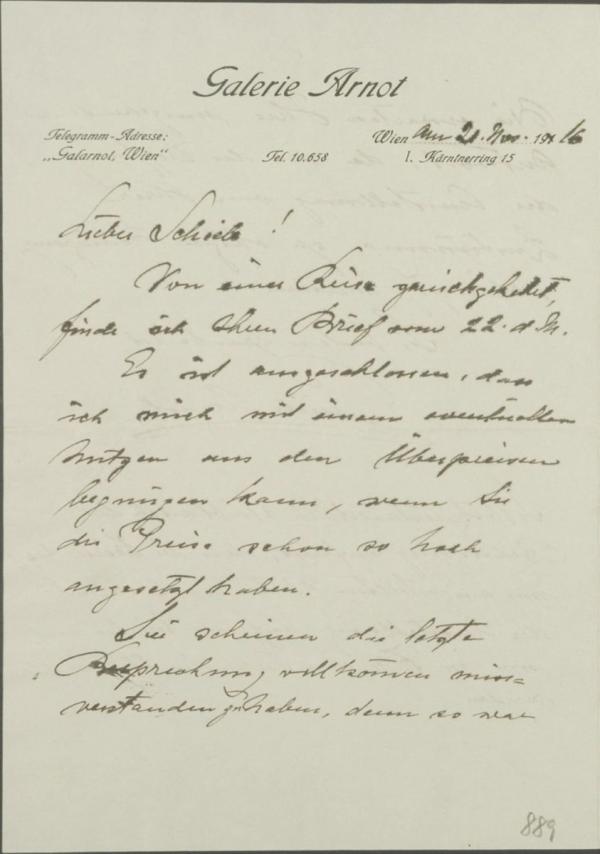 Galerie Arnot
Telegramm-Adresse:
„Galarnot, Wien“
Tel. 10.658
Wien am 2. Nov. 1916
I. Kärntnerring 15
Lieber Schiele!
Von einer Reise zurückgekehrt,
finde ich Ihren Brief vom 22. d M.
Es ist ausgeschlossen, dass
ich mich mit einem eventuellen
Nutzen aus den Überpreisen
begnügen kann, wenn Sie
die Preise schon so hoch
angesetzt haben.
Sie scheinen die letzte
Besprechung vollkommen miss=
verstanden zu haben, denn so war
889